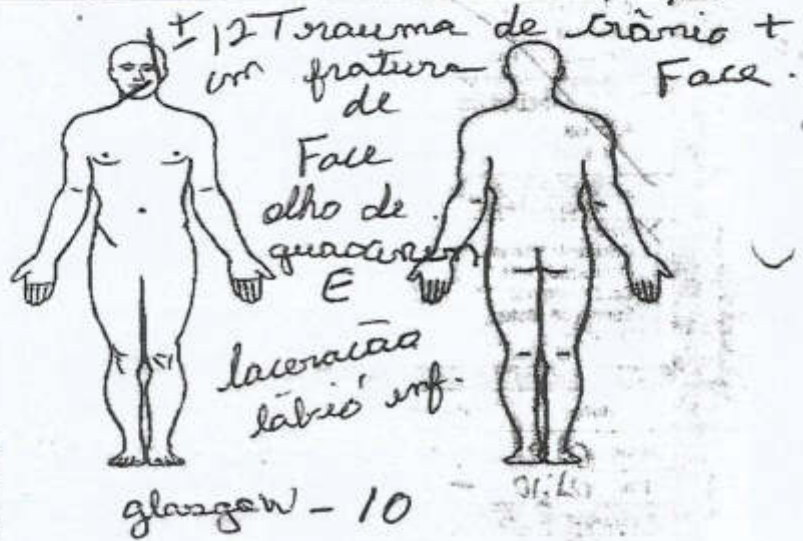 ± 12 Trauma de crânio +
cm fratura Face.
de
Face
olho de
guaxinim
E
laceração
lábio inf.
glasgow - 10